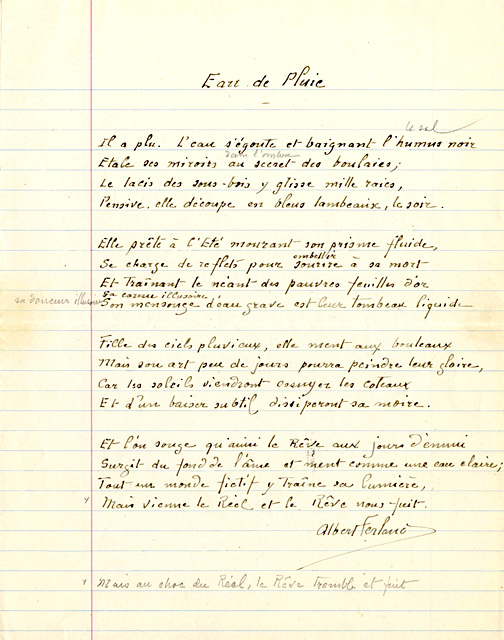 Eau de Pluie
le sol
Il a plu. L'eau s'égoute et baignant l'humus noir
dans l'ombre
Etale ses miroirs au secret des boulaies;
Le lacis des sous-bois y glisse mille raies,
Pensive, elle découpe en bleus lambeaux, le soir.
Elle prête à l'Eté mourant son prisme fluide,
embellir
Se charge de reflets pour sourire à sa mort
Et traînant le néant des pauvres feuilles d'or
sa douceur illusoire
Sa calme illusoire
Son mensonge d'eau grave est leur tombeau liquide
Fille des ciels pluvieux, elle ment aux bouleaux
Mais son art peu de jours pourra peindre leur gloire,
Car les soleils viendront essuyer les coteaux
Et d'un baiser subtil dissiperont sa moire.
Et l'on songe qu'ainsi le Rêve aux jours d'ennui
Surgit du fond de l'âme et ment comme une eau claire;
Tout un monde fictif y traîne sa lumière,
x Mais vienne le Réel et le Rêve nous fuit.
Albert Ferland
x Mais au choc du Réel, le Rêve tremble et fuit